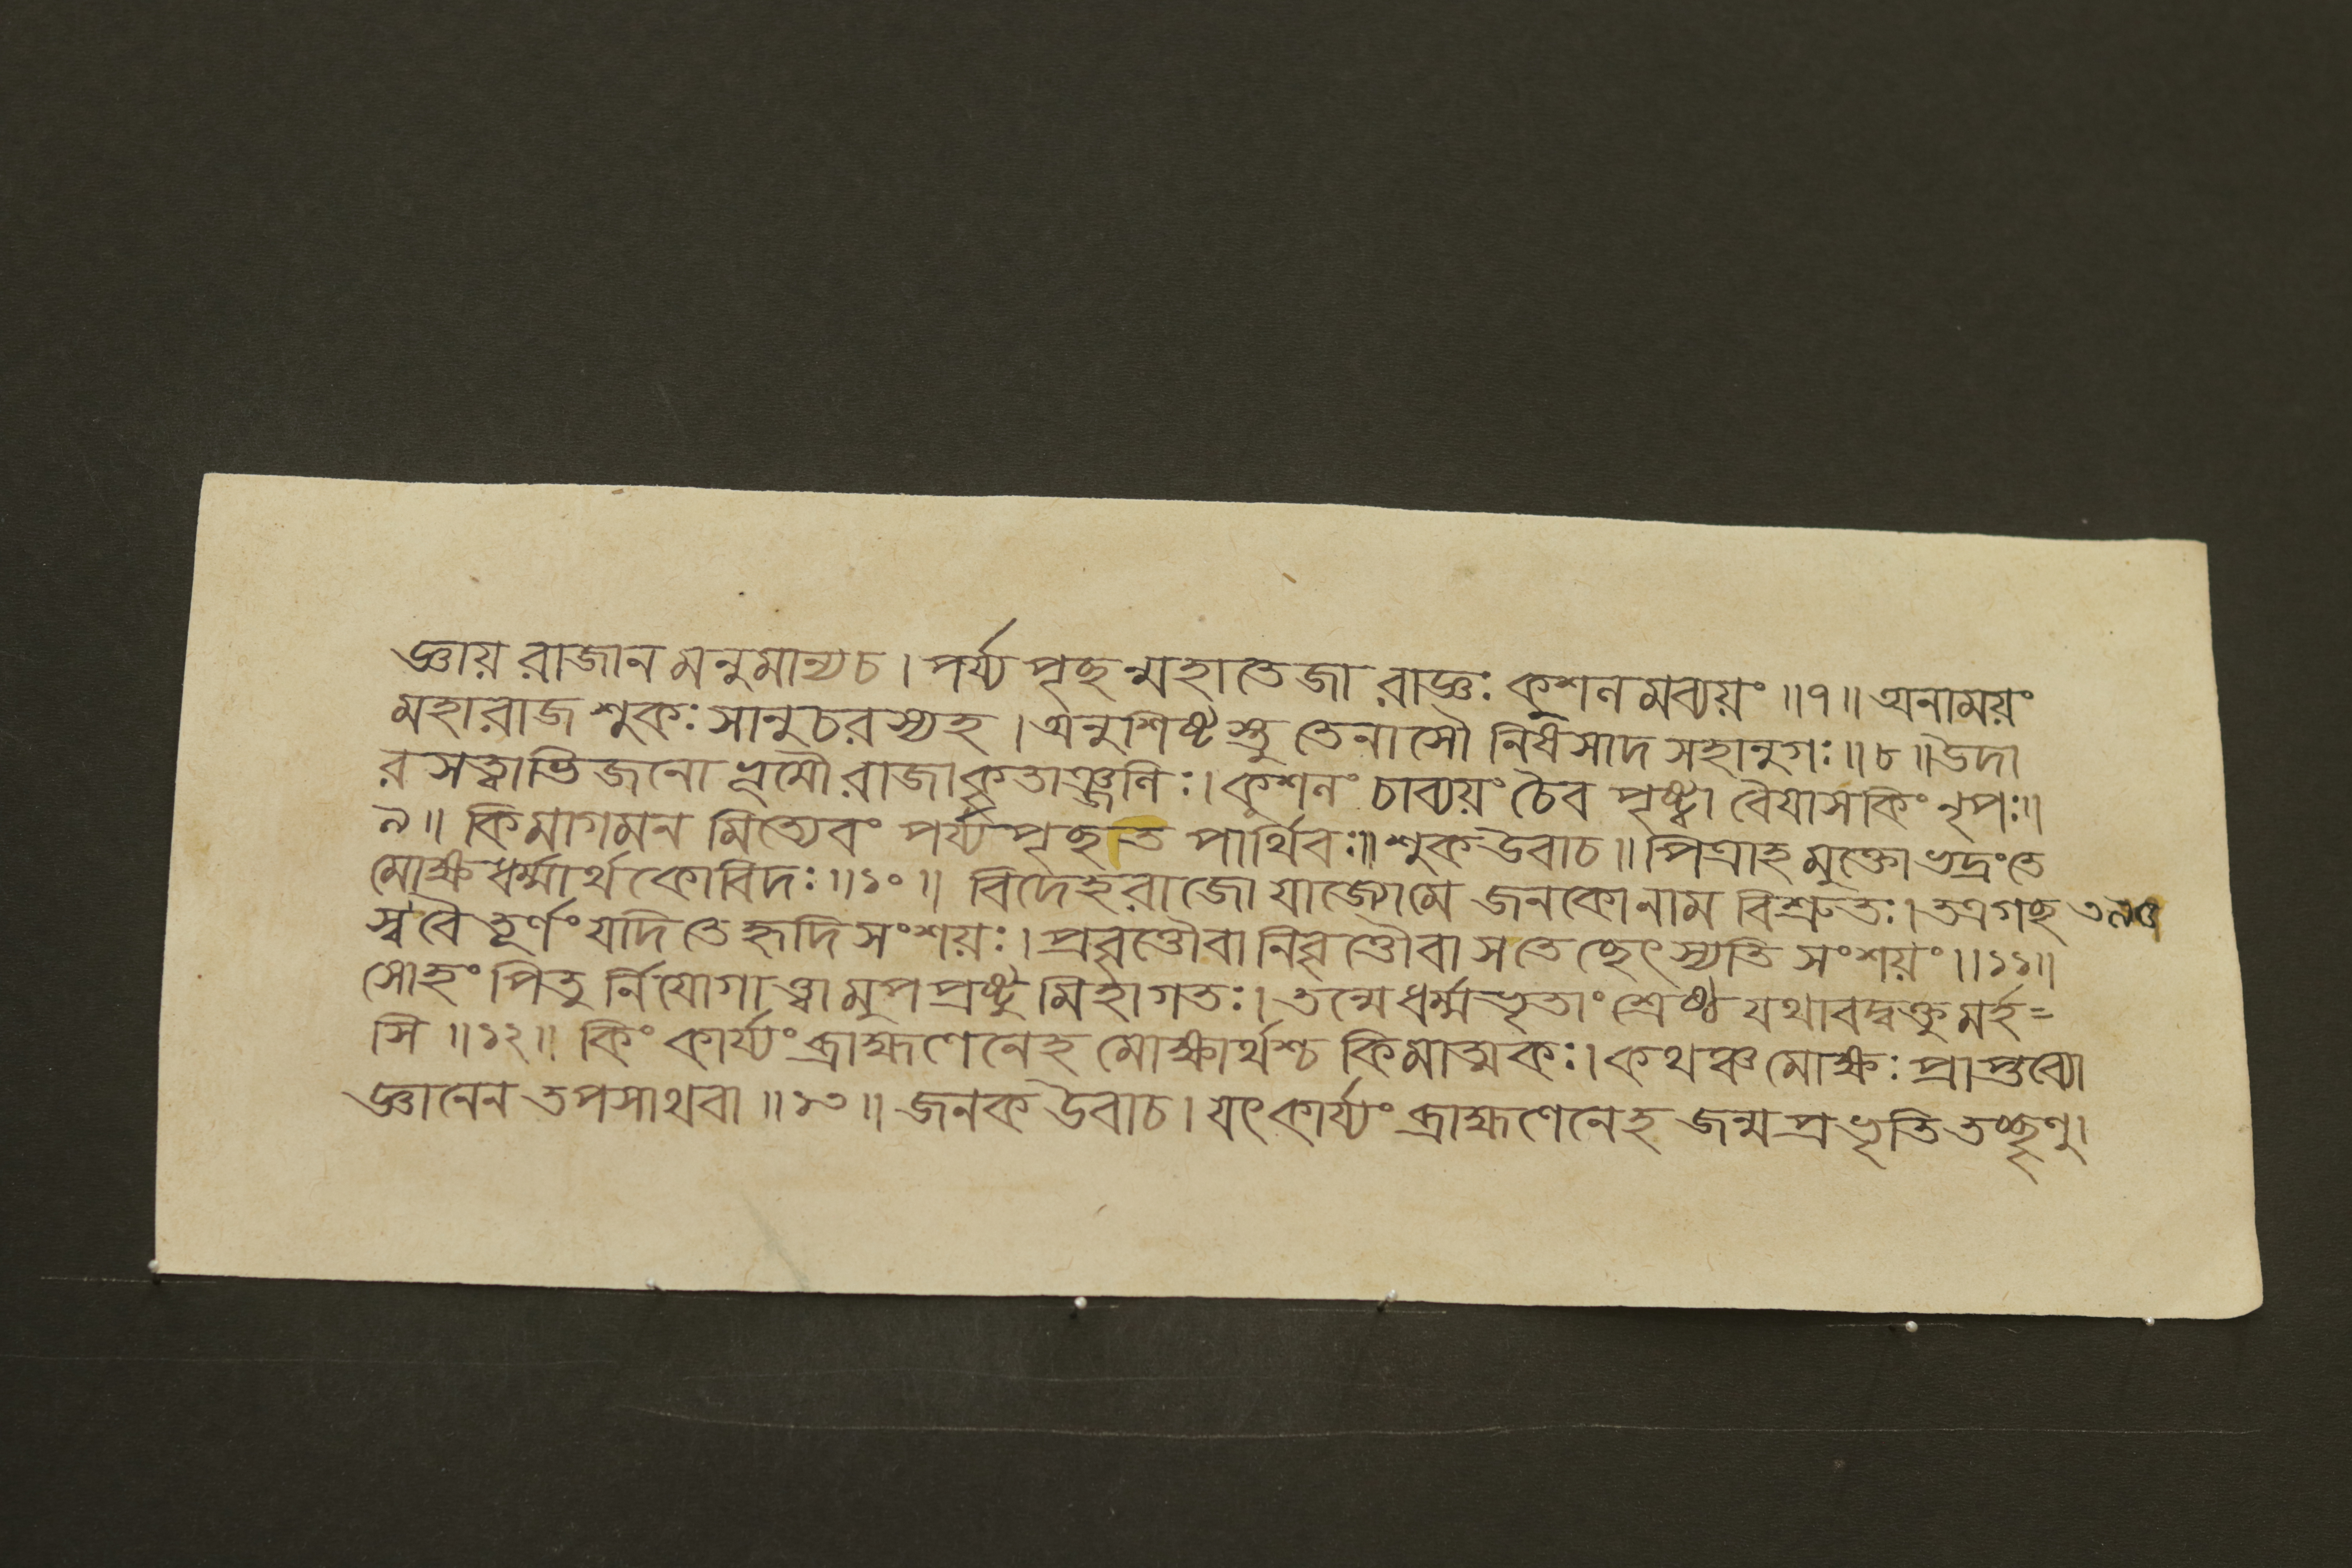 জ্ঞায় রাজানমনুমান্যচ। পর্য্যপৃছন্মহাতেজা রাজ্ঞঃ কুশলমব্যয়ং॥৭॥ অনাময়ং
মহারাজ শুকঃ সানুচরস্যহ। অনুশিষ্টস্তু তেনাসৌ নিষসাদ সহানুগঃ॥৮॥ উদা
রসত্বাভিজনো ভূমৌ রাজা কৃতাঞ্জলিঃ। কুশলং চাব্যয়ং চৈব পৃষ্ট্বা বৈয়াসকিং নৃপঃ॥
৯॥ কিমাগমনমিত্যেবং পর্য্যপৃছত পার্থিবঃ॥ শুক উবাচ॥ পিত্রাহমুক্তো ভদ্রংতে
মোক্ষধর্ম্মার্থকোবিদঃ॥১০॥ বিদেহরাজো যাজ্যোমে জনকোনাম বিশ্রুতঃ। তত্রগছ
স্ব বৈ তূর্ণং যদি তে হৃদি সংশয়ঃ। প্রবৃত্তৌবা নিবৃত্তৌবা সতেচ্ছেৎস্যতি সংশয়ং॥১১॥
সোহং পিতুর্নিয়োগাত্ত্বামুপপ্রষ্টুমিহাগতঃ। তন্মে ধর্ম্মভৃতাং শ্রেষ্ঠ যথাবদ্বক্তুমর্হ=
সি॥১২॥ কিং কার্য্যং ব্রাহ্মণেনেহ মোক্ষার্থশ্চ কিমাত্মকঃ। কথঞ্চ মোক্ষঃ প্রাপ্তব্যো
জ্ঞানেন তপসাথবা॥১৩॥ জনক উবাচ। যৎকার্য্যং ব্রাহ্মণেনেহ জন্মপ্রভৃতি তচ্ছৃণু।